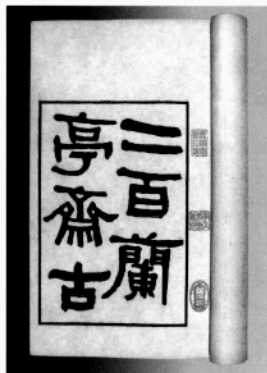 二百蘭
亭齋古